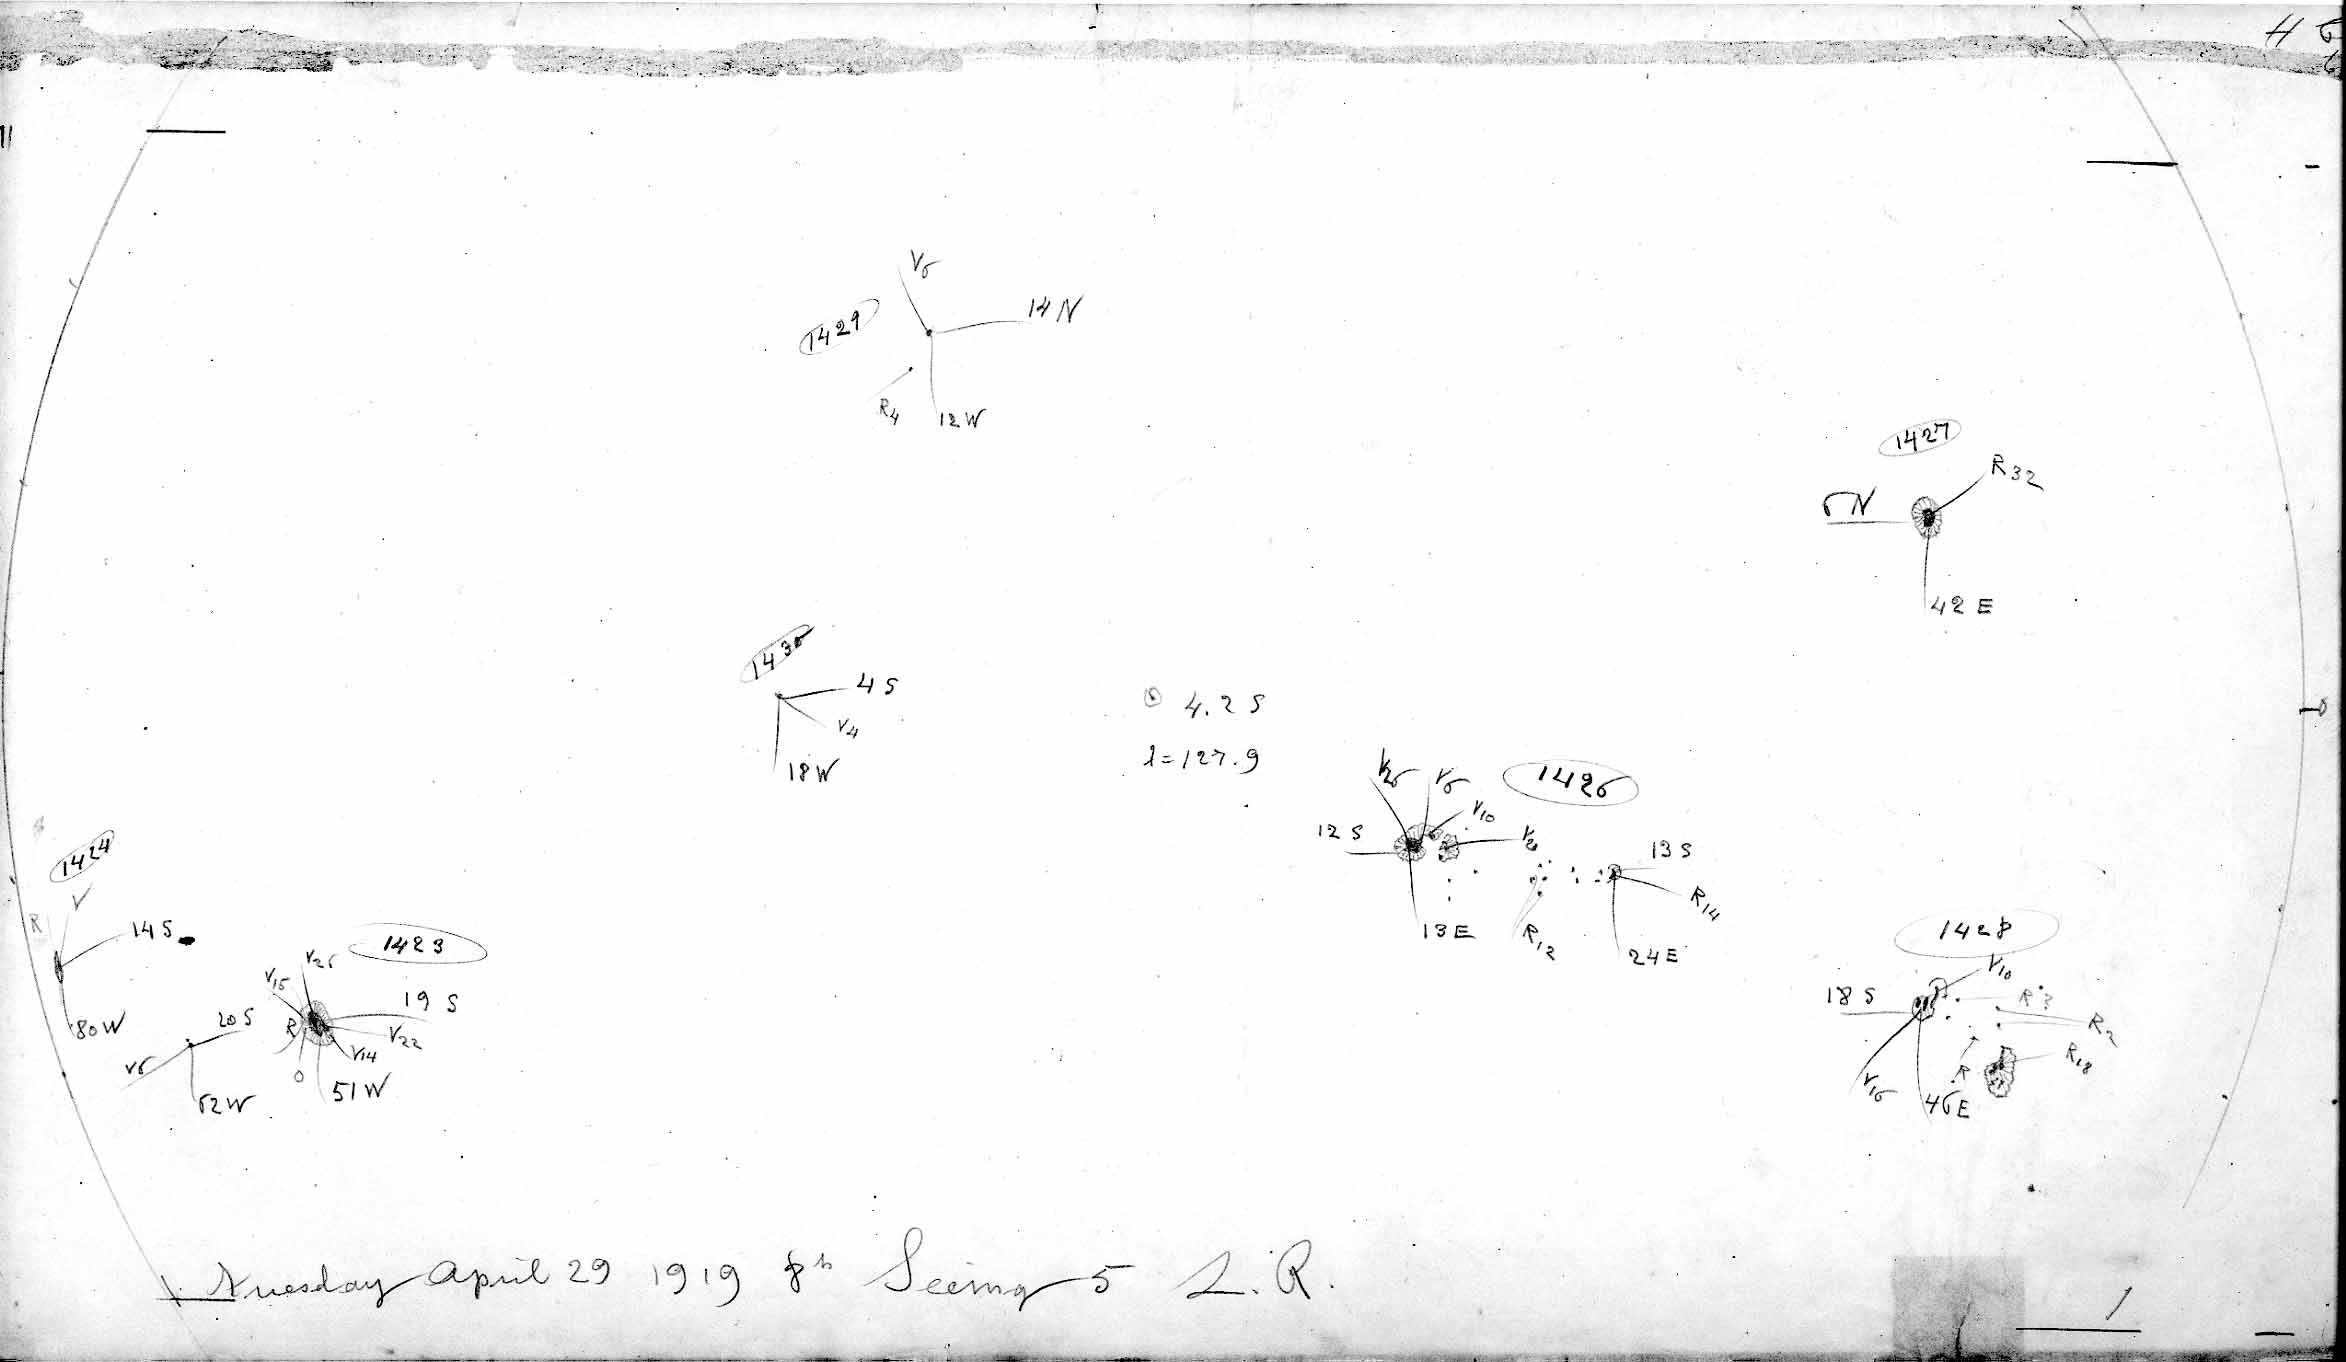 V6
14 N
1429
R4
12 W
1427
R32
6 N
42 E
1430
4 S
V4
18 W
4.2 S
l=127.9
V6
1426
V10
12 S
13 S
R14
13 E
R12
24 E
1424
V
R
14 S
80 W
1423
V15
19 S
20 S
R
V22
V14
V6
62 W
51 W
1428
V10
18 S
R3
R2
R18
R
V16
46 E
Tuesday April 29 1919 8h Seeing 5 S. R.